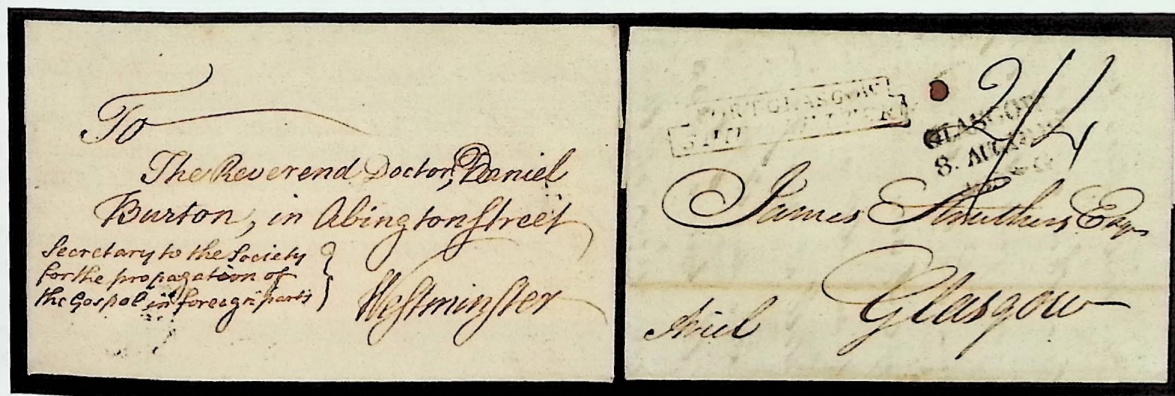 To
The Reverend Doctor, Daniel
Burton, in Abington Street
Secretary to the Society
for the propagation of
the Gospel in foreign parts
Westminster
PORT GLASGOW
SHIP LETTER
2/4
GLASGOW
8. AUG
James Struthers Esqr
Glasgow
Ariel